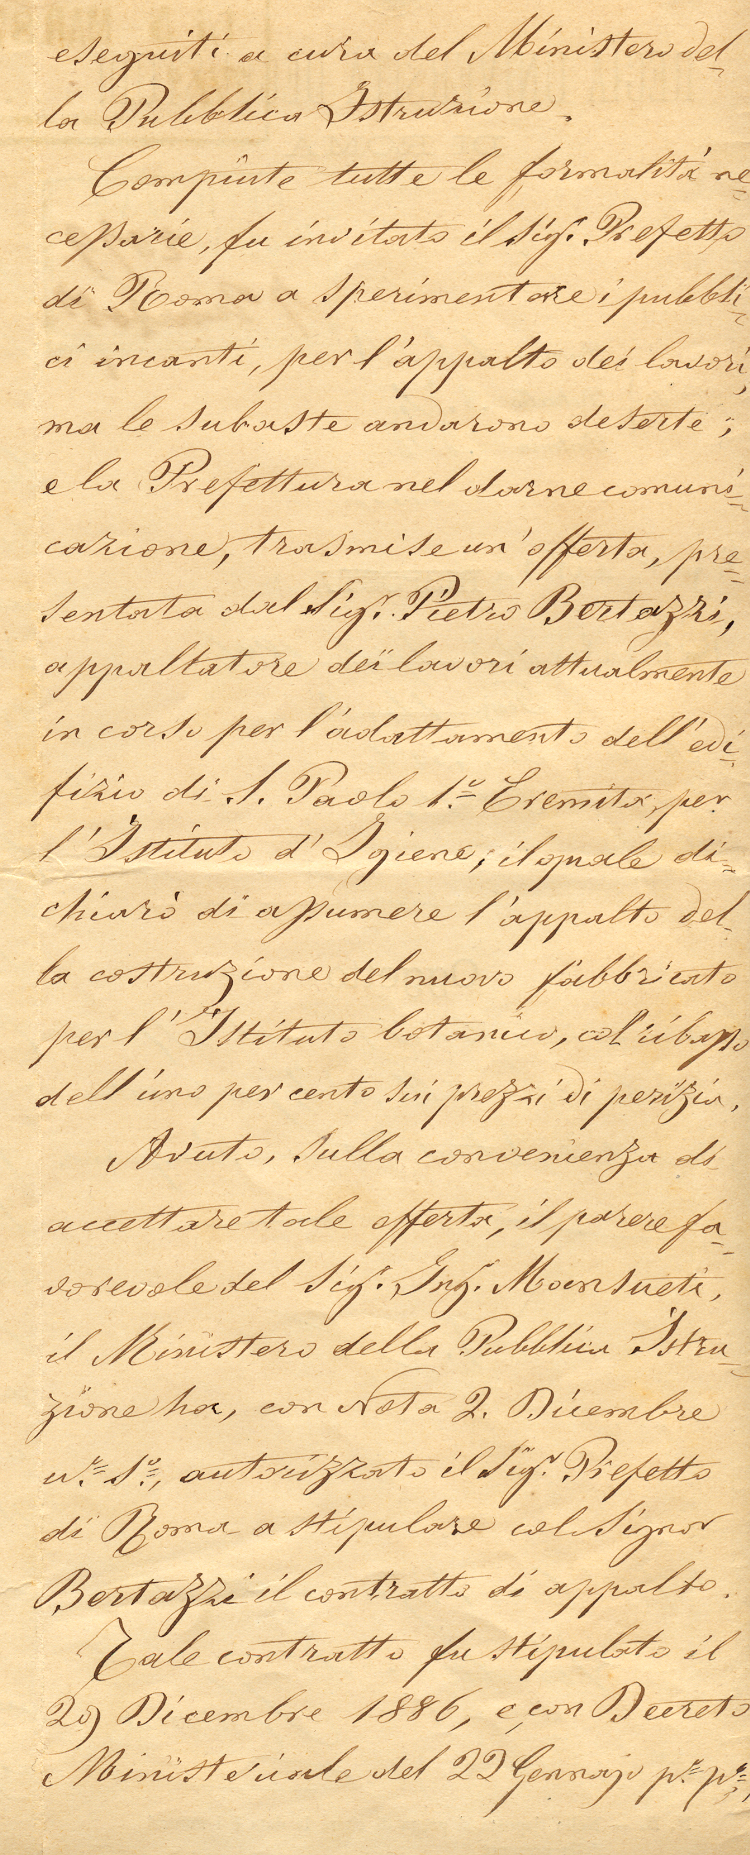 eseguiti a cura del Ministero del-
la Pubblica Istruzione.
Compiute tutte le formalità ne-
cessarie, fu invitato il Sigr. Prefetto
di Roma a sperimentare i pubbli-
ci incanti, per l'appalto dei lavori,
ma le subaste andarono deserte;
e la Prefettura nel darne comuni-
cazione, trasmise un'offerta, pre-
sentata dal Sigr. Pietro Bertazzi,
appaltatore dei lavori attualmente
in corso per l'adattamento dell'edi-
fizio di S. Paolo 1.º Eremita, per
l'Istituto d'Igiene; il quale di-
chiarò di assumere l'appalto del-
la costruzione del nuovo fabbricato
per l'Istituto botanico, col ribasso
dell'uno per cento sui prezzi di perizia.
Avuto, sulla convenienza di
accettare tale offerta, il parere fa-
vorevole del Sigr. Ing. Mansueti,
il Ministero della Pubblica Istru-
zione ha, con Nota 2. Dicembre
autorizzato il Sigr. Prefetto
di Roma a stipulare col Signor
Bertazzi il contratto di appalto.
Tale contratto fu stipulato il
29 Dicembre 1886, e con Decreto
Ministeriale del 22 Gennajo pº pº,